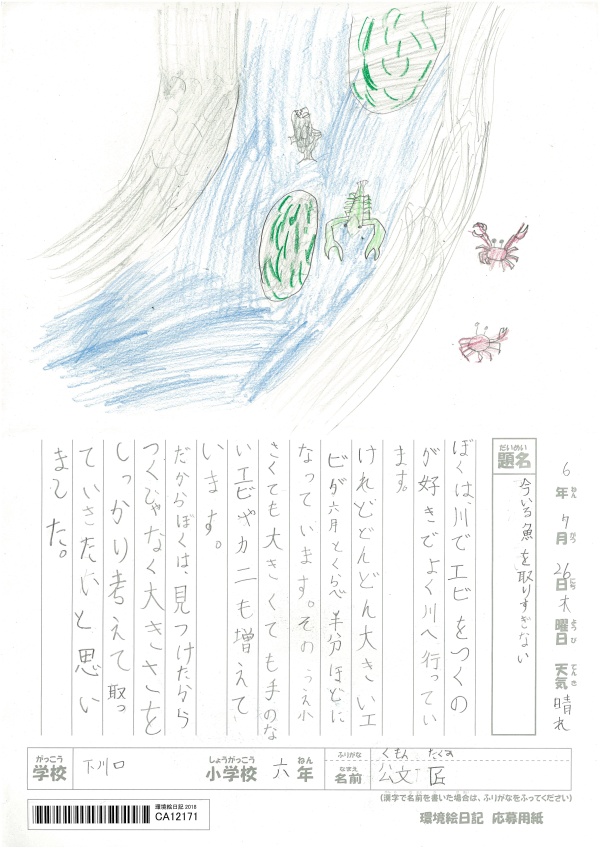 6年7月26日木曜日 天気 晴れ
ねん がつ にち ようび てんき
だいめい
題名
今いる魚を取りすぎない
ぼくは、川でエビをつくの
が好きでよく川へ行ってい
ます。
けれどどんどん大きいエ
ビが六月とくらべ半分ほどに
なっています。そのうえ小
さくても大きくても手のな
いエビやカニも増えて
います。
だからぼくは、見つけたらら
つくじゃなく大きさを
しっかり考えて取っ
ていきたいと思い
ました。
がっこう
学校 下川口
しょうがっこう ねん
小学校 六年
ふりがな くもん たくみ
なまえ
名前 公文 匠
(漢字で名前を書いた場合は、ふりがなをふってください)
環境絵日記 2018
CA12171
環境絵日記 応募用紙